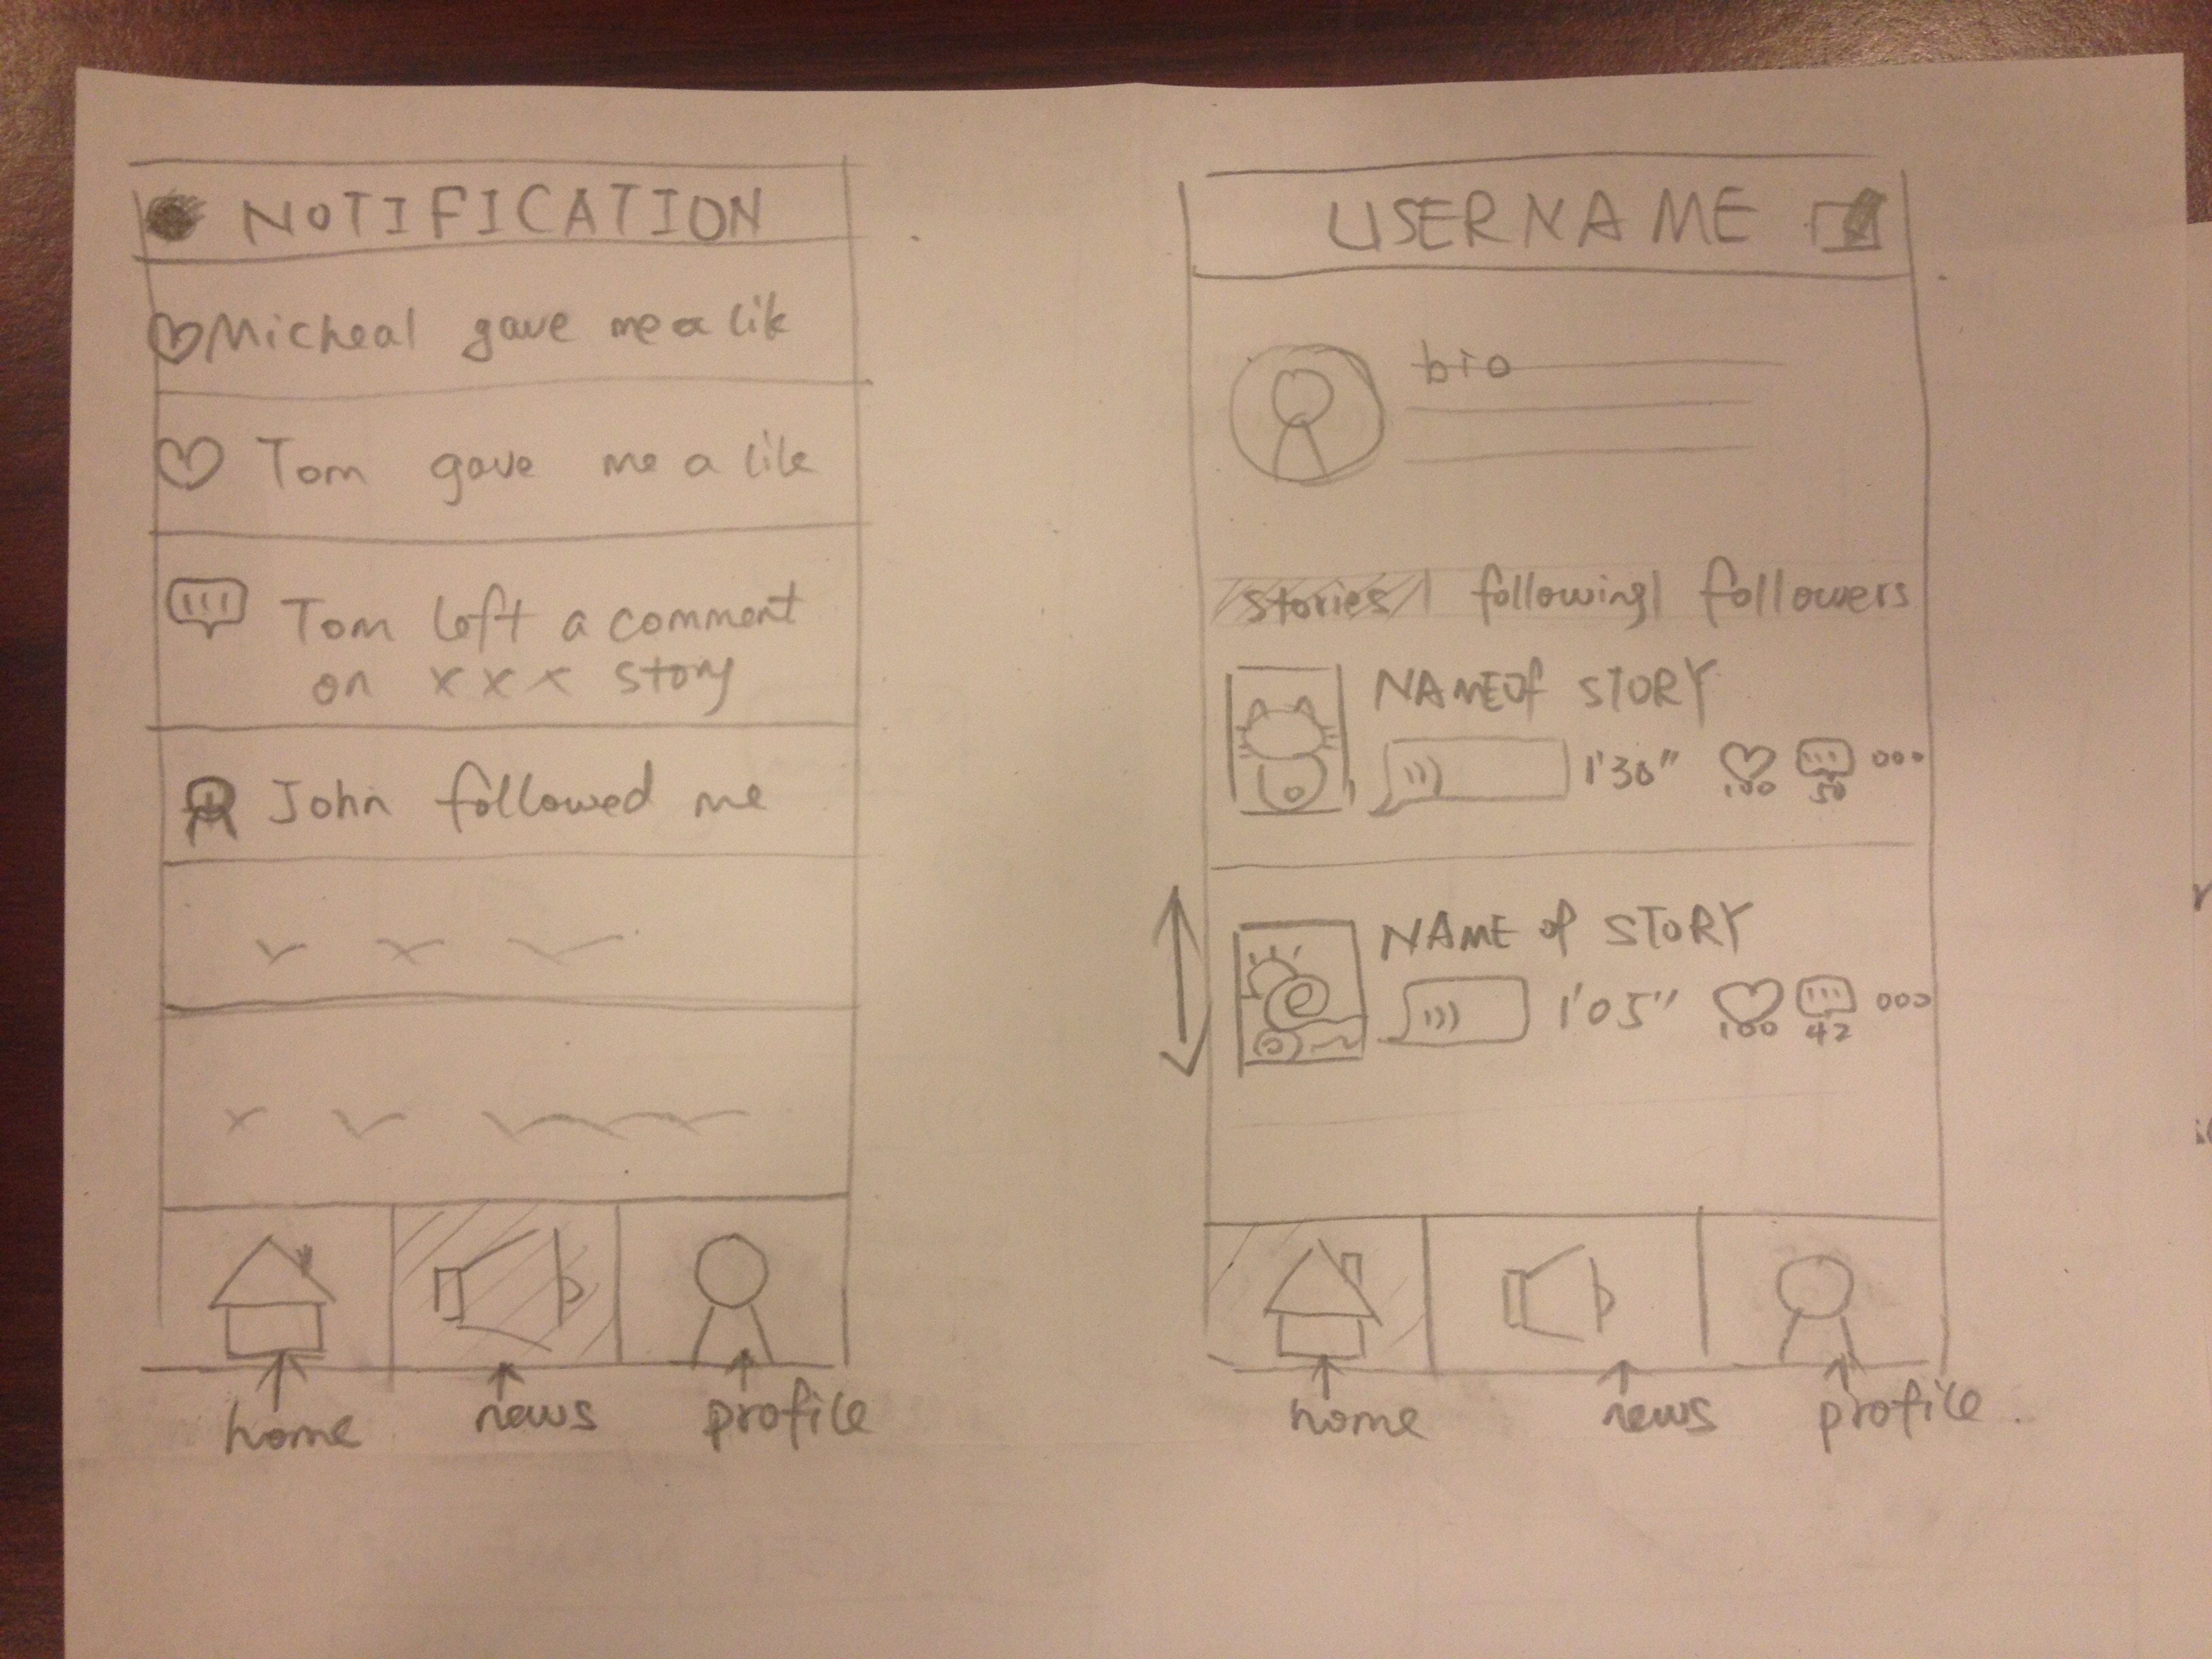 NOTIFICATION
Micheal gave me a lik
Tom gave me a lik
Tom left a comment
on xxx story
John followed me
home news profile
USERNAME
bio
stories | following | followers
NAME of STORY
1'30" 100 50
NAME of STORY
1'05" 100 42
home news profile